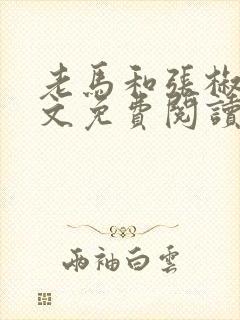 老馬和張椒
文免費閱讀
兩袖白雲